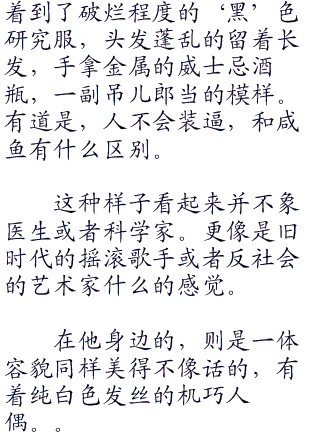 看到了破烂程度的‘黑’色
研究服，头发蓬乱的留着长
发，手拿金属的威士忌酒
瓶，一副吊儿郎当的模样。
有道是，人不会装逼，和咸
鱼有什么区别。
这种样子看起来并不象
医生或者科学家。更像是旧
时代的摇滚歌手或者反社会
的艺术家什么的感觉。
在他身边的，则是一体
容貌同样美得不像话的，有
着纯白色发丝的机巧人
偶。。